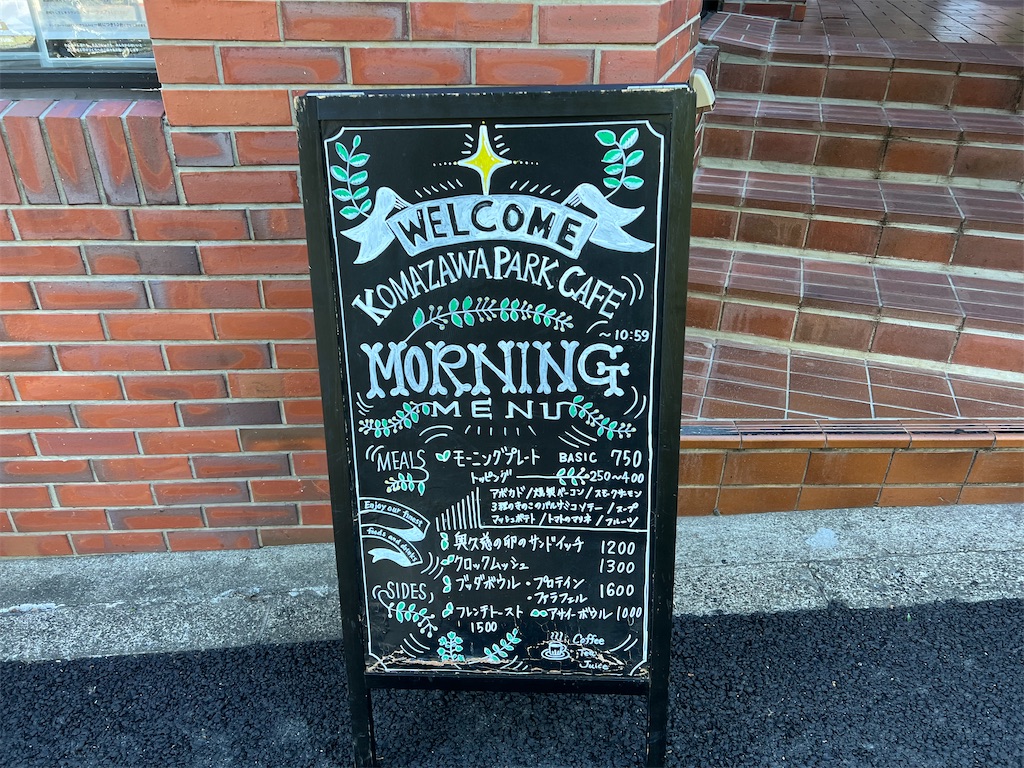 WELCOME
KOMAZAWA PARK CAFE
~10:59
MORNING
MENU
MEALS
モーニングプレート BASIC 750
トッピング 250~400
アボカド/燻製ベーコン/スモークサーモン
3種のきのこのバルサミコソテー/スープ
マッシュポテト/トマトのマリネ/フルーツ
Enjoy our finest
foods and drinks
奥久慈の卵のサンドイッチ 1200
クロックムッシュ 1300
ブッダボウル・プロテイン
・ファラフェル 1600
SIDES
フレンチトースト アサイーボウル 1000
1500
Coffee
Tea
Juice